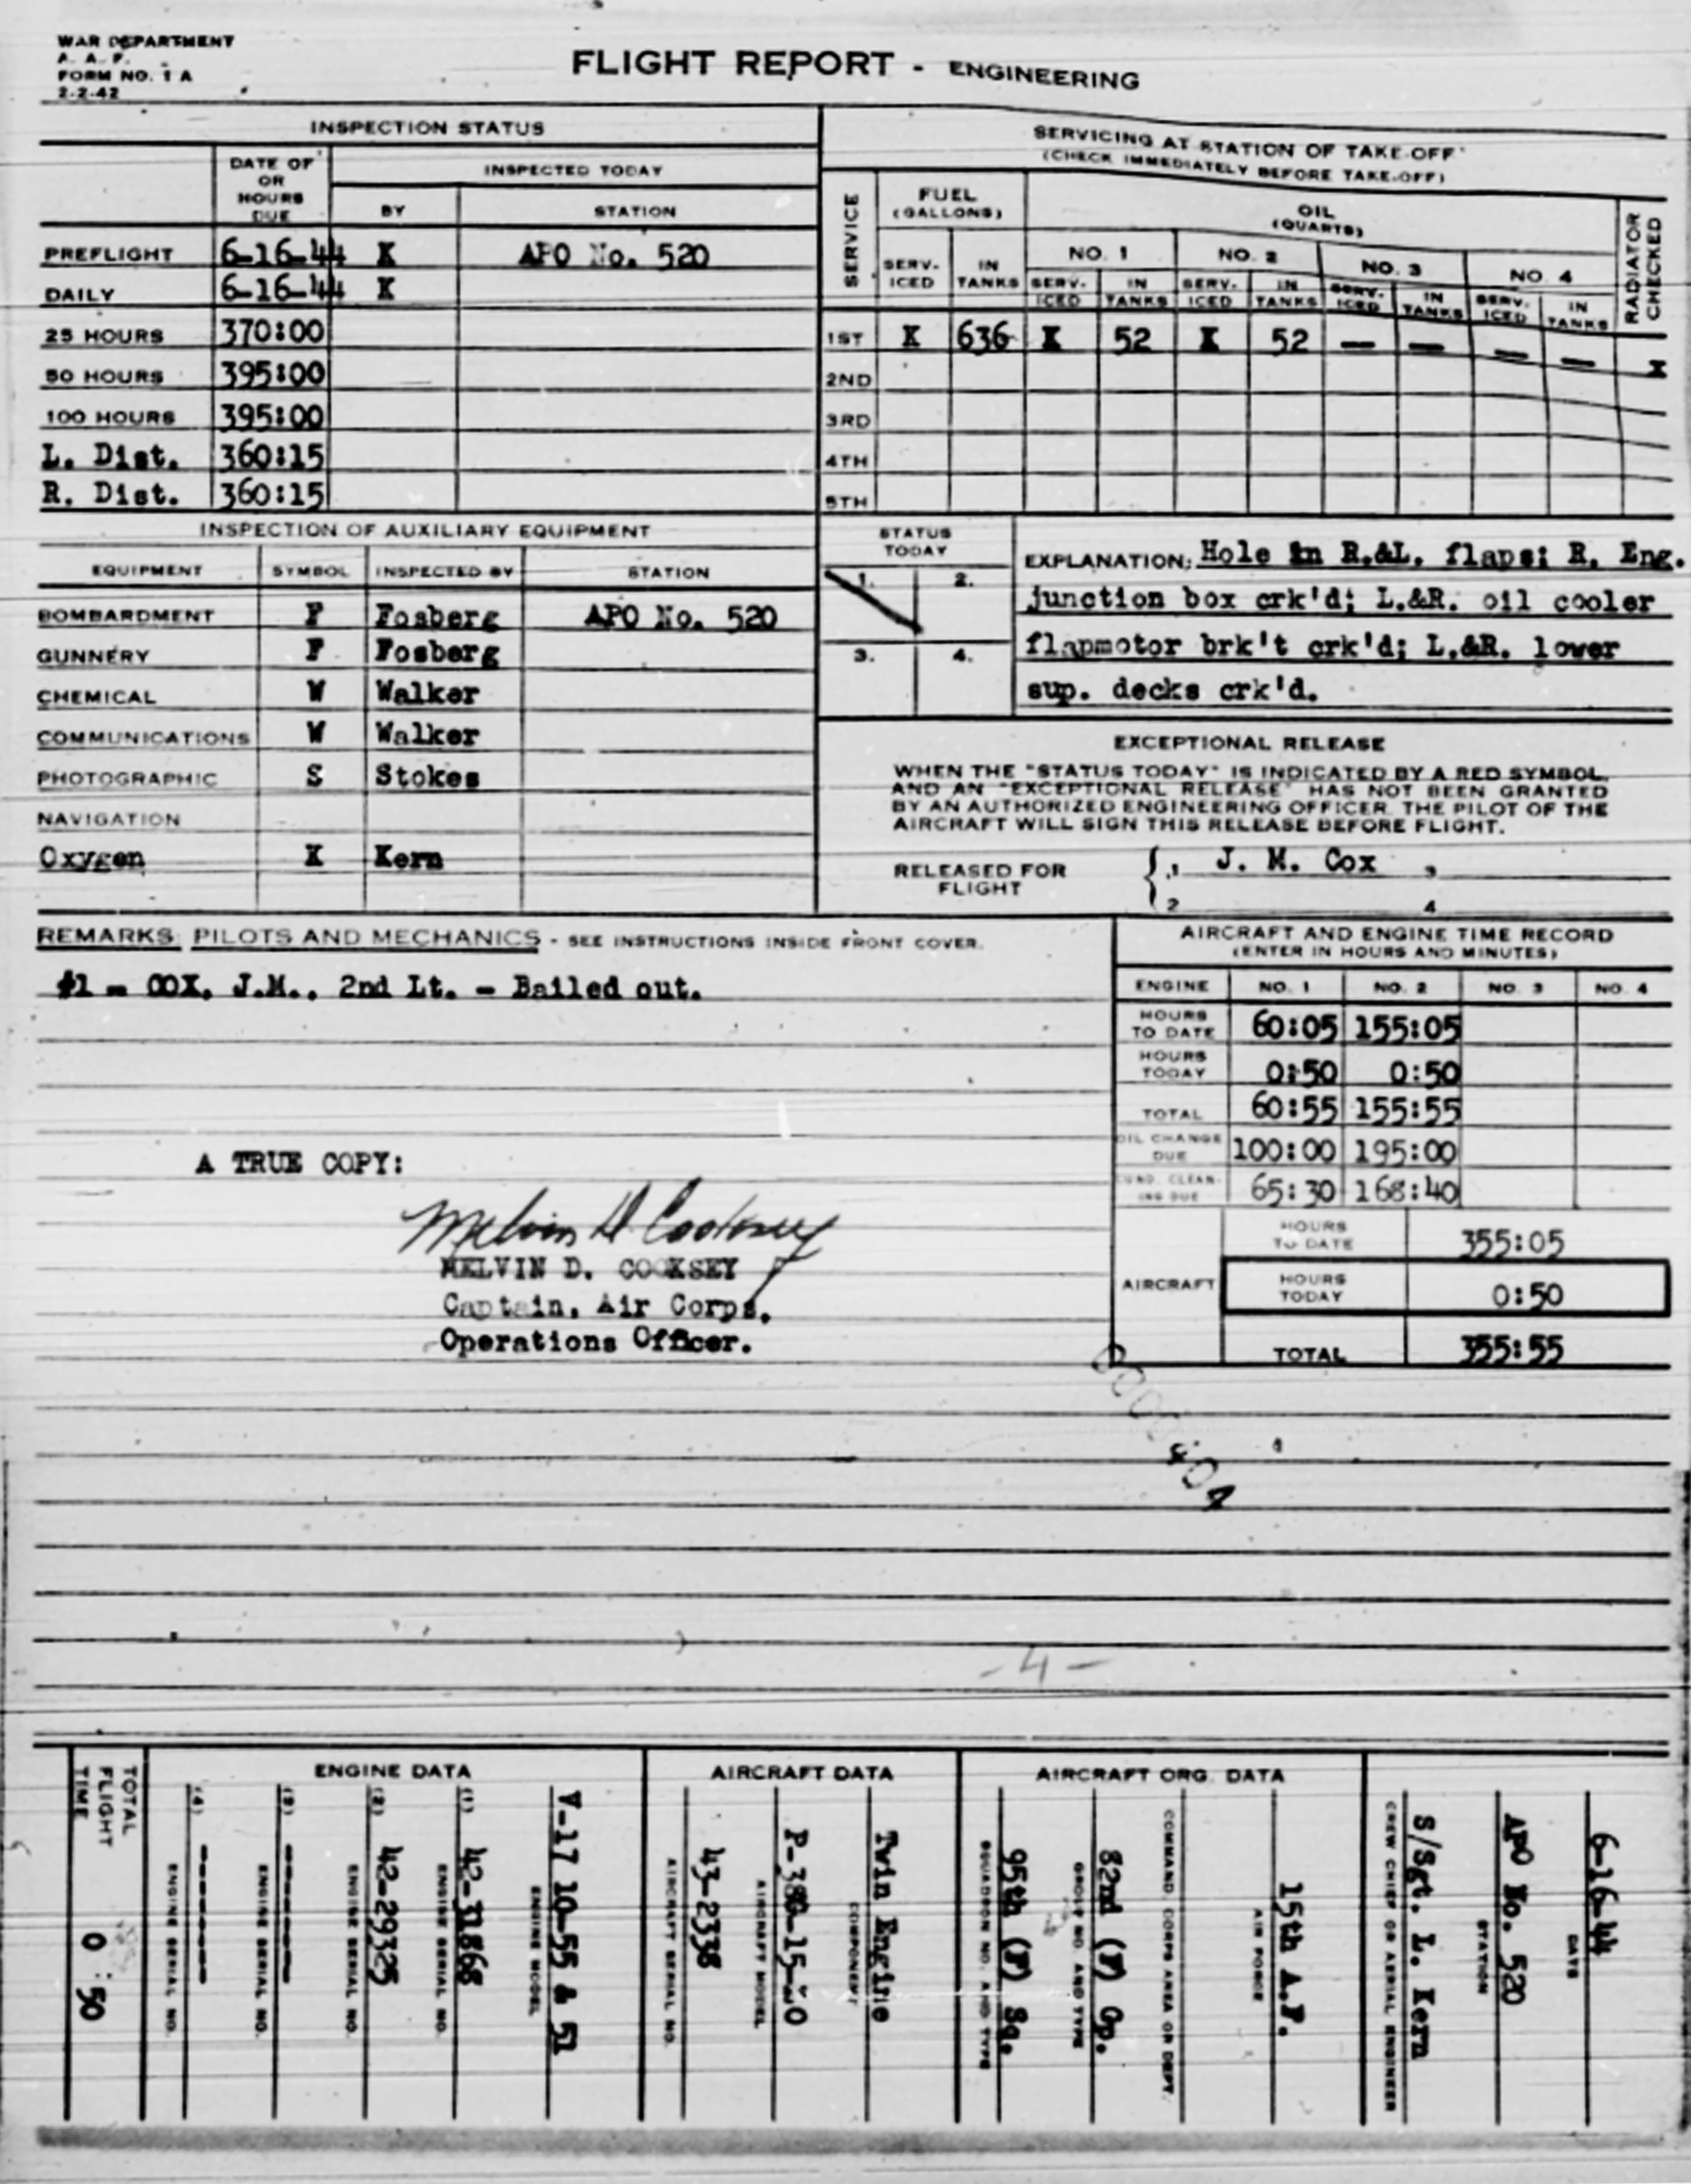 WAR DEPARTMENT
A. A. F.
FORM NO. 1 A
2-2-42
FLIGHT REPORT - ENGINEERING
INSPECTION STATUS
DATE OF OR HOURS DUE
INSPECTED TODAY
BY STATION
PREFLIGHT 6-16-44 K APO No. 520
DAILY 6-16-44 K
25 HOURS 370:00
50 HOURS 395:00
100 HOURS 395:00
L. Dist. 360:15
R. Dist. 360:15
SERVICING AT STATION OF TAKE-OFF
(CHECK IMMEDIATELY BEFORE TAKE-OFF)
SERVICE
FUEL (GALLONS)
OIL (QUARTS)
RADIATOR CHECKED
NO. 1 NO. 2 NO. 3 NO. 4
SERV-ICED IN TANKS SERV-ICED IN TANKS SERV-ICED IN TANKS SERV-ICED IN TANKS SERV-ICED IN TANKS
1ST X 636 X 52 X 52 — — — — X
2ND
3RD
4TH
5TH
INSPECTION OF AUXILIARY EQUIPMENT
EQUIPMENT SYMBOL INSPECTED BY STATION
BOMBARDMENT F Fosberg APO No. 520
GUNNERY F Fosberg
CHEMICAL W Walker
COMMUNICATIONS W Walker
PHOTOGRAPHIC S Stokes
NAVIGATION
Oxygen K Kern
STATUS TODAY
1. 2.
3. 4.
EXPLANATION: Hole in R.&L. flaps; R. Eng.
junction box crk'd; L.&R. oil cooler
flapmotor brk't crk'd; L.&R. lower
sup. decks crk'd.
EXCEPTIONAL RELEASE
WHEN THE "STATUS TODAY" IS INDICATED BY A RED SYMBOL,
AND AN "EXCEPTIONAL RELEASE" HAS NOT BEEN GRANTED
BY AN AUTHORIZED ENGINEERING OFFICER THE PILOT OF THE
AIRCRAFT WILL SIGN THIS RELEASE BEFORE FLIGHT.
RELEASED FOR FLIGHT
1 J. M. Cox 3
2 4
REMARKS: PILOTS AND MECHANICS - SEE INSTRUCTIONS INSIDE FRONT COVER.
#1 - COX, J.M., 2nd Lt. - Bailed out.
AIRCRAFT AND ENGINE TIME RECORD
(ENTER IN HOURS AND MINUTES)
ENGINE NO. 1 NO. 2 NO. 3 NO. 4
HOURS TO DATE 60:05 155:05
HOURS TODAY 0:50 0:50
TOTAL 60:55 155:55
OIL CHANGE DUE 100:00 195:00
CLEAN-ING DUE 65:30 168:40
AIRCRAFT
HOURS TO DATE 355:05
HOURS TODAY 0:50
TOTAL 355:55
A TRUE COPY:
Melvin D Cooksey
MELVIN D. COOKSEY
Captain, Air Corps,
Operations Officer.
-4-
TOTAL FLIGHT TIME 0:50
ENGINE DATA
(4) ------ ENGINE SERIAL NO.
(3) ------ ENGINE SERIAL NO.
(2) 42-29325 ENGINE SERIAL NO.
(1) 42-31868 ENGINE SERIAL NO.
V-17 10-55 & 51 ENGINE MODEL
AIRCRAFT DATA
43-2338 AIRCRAFT SERIAL NO.
AIRCRAFT MODEL
Twin Engine COMPONENT
AIRCRAFT ORG. DATA
95th (F) Sq. SQUADRON NO. AND TYPE
82nd (F) Gp. GROUP NO. AND TYPE
COMMAND, CORPS AREA OR DEPT.
15th A.F. AIR FORCE
S/Sgt. L. Kern CREW CHIEF OR AERIAL ENGINEER
APO No. 520 STATION
6-16-44 DATE